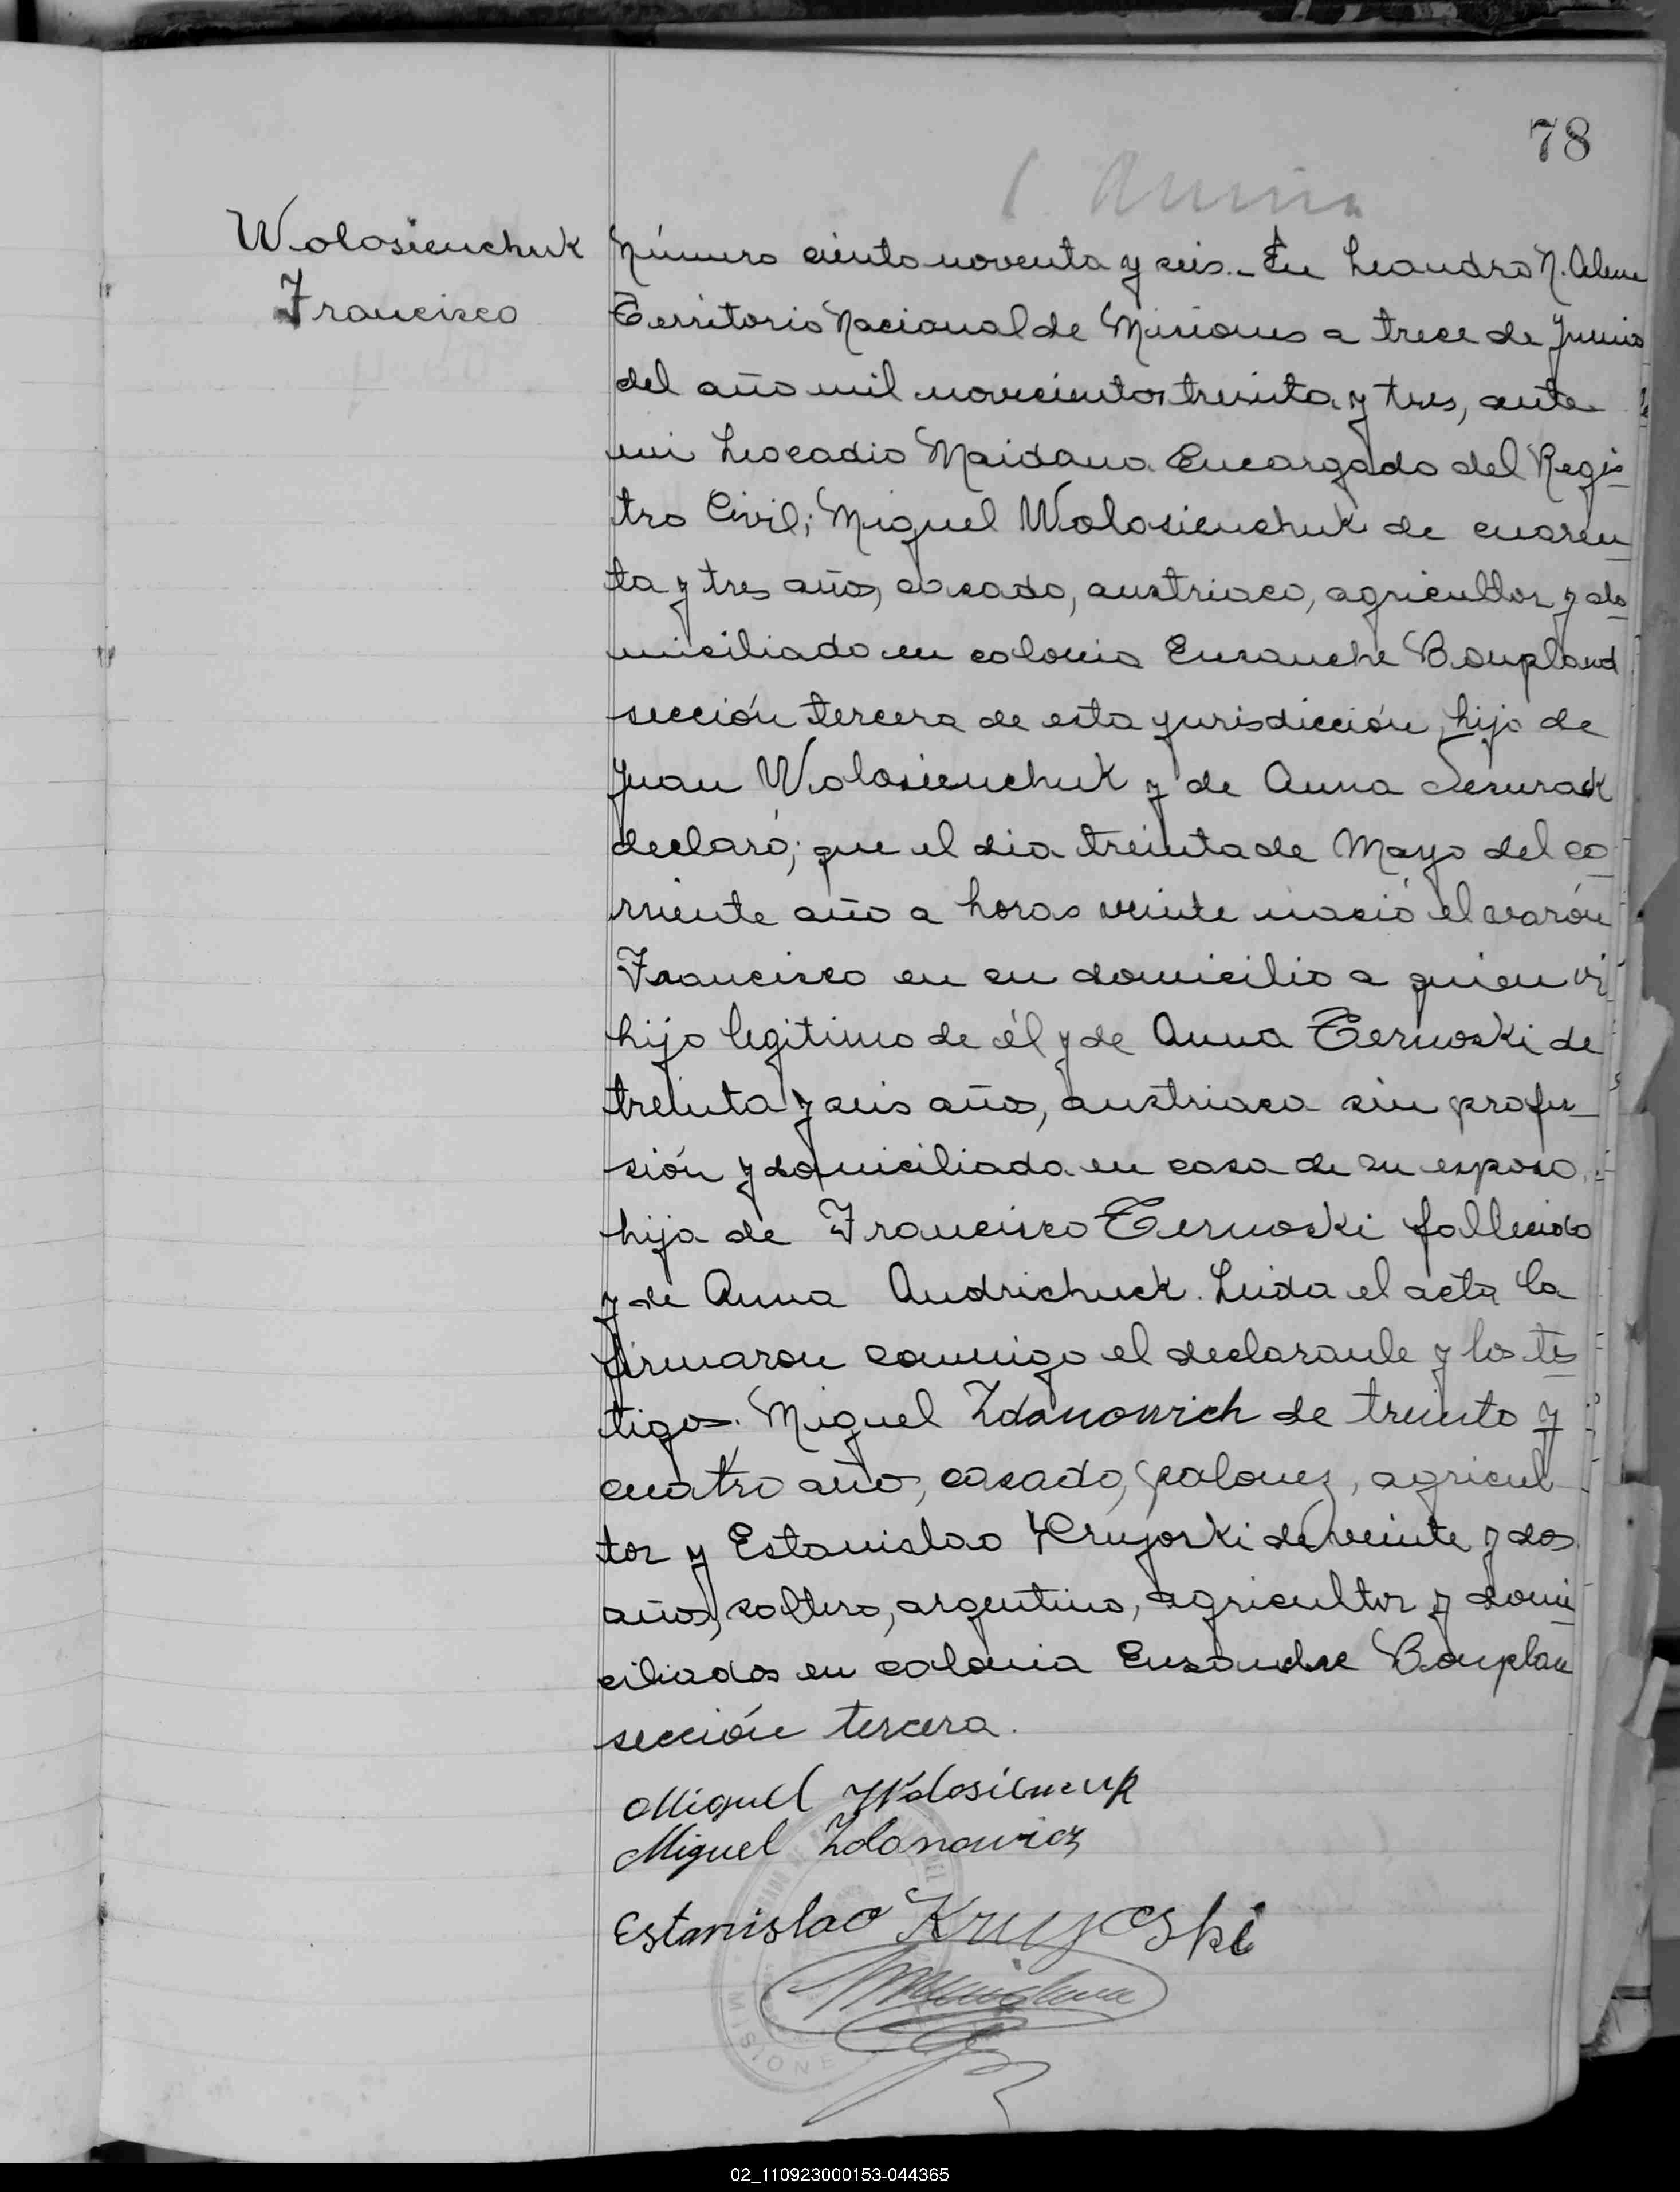 78
Wolosienchuk
Francisco
Número ciento noventa y seis._ En Leandro N. Alem
Territorio Nacional de Misiones a trece de Junio
del año mil novecientos treinta y tres, ante
mi Leocadio Maidana Encargado del Regis
tro Civil; Miguel Wolosienchuk de cuaren
ta y tres años, casado, austriaco, agricultor y do
miciliado en colonia Ensanche Bonpland
sección tercera de esta jurisdicción, hijo de
Juan Wolosienchuk y de Anna
declaró; que el dia treinta de Mayo del co
rriente año a horas veinte nació el varón
Francisco en su domicilio a quien vi
hijo legitimo de él y de Anna Ternoski de
treinta y seis años, austriaca sin profe
sión y domiciliada en casa de su esposo,
hija de Francisco Ternoski fallecido
y de Anna Andrichuck. Leida el acta la
firmaron conmigo el declarante y los tes
tigos. Miguel Zdanowich de treinta y
cuatro años, casado, polonez, agricul
tor y Estanislao Krujoski de veinte y dos
años, soltero, argentino, agricultor y domi
ciliados en colonia Ensanche Bonplan
sección tercera.
Miguel
Miguel Zdanowicz
Estanislao Krujoski
Maidana
MISIONE